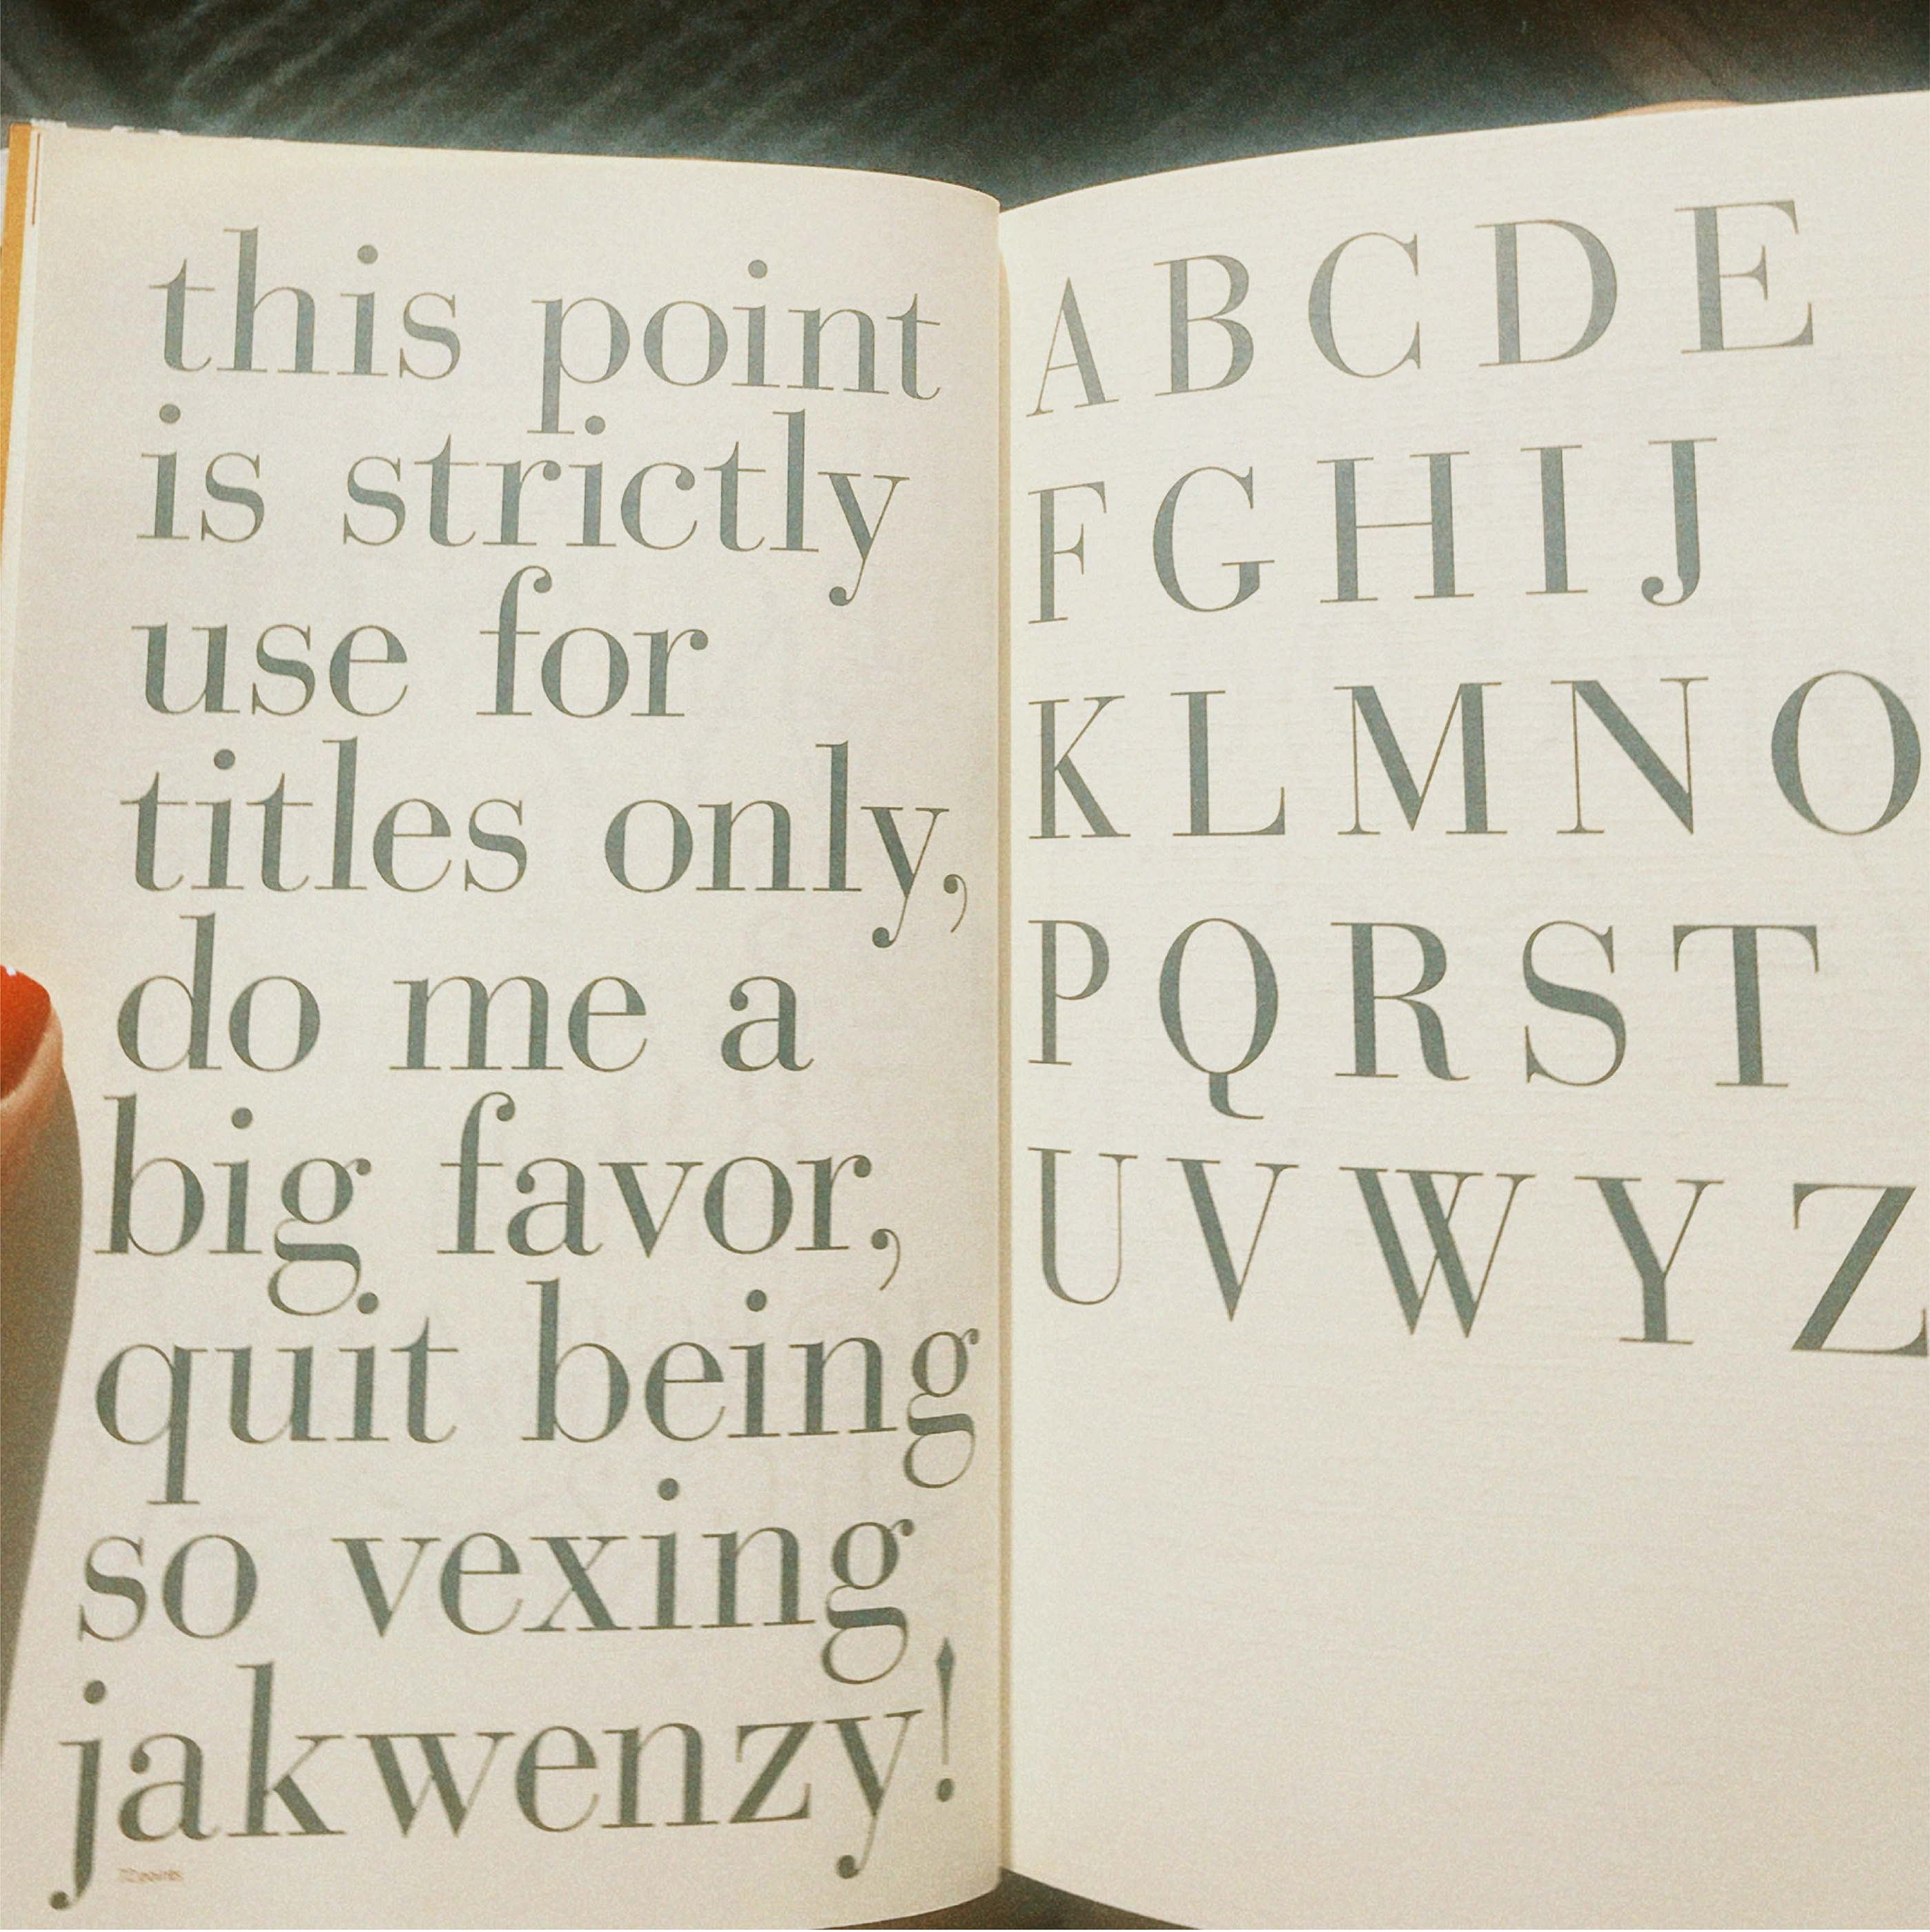 this point
is strictly
use for
titles only,
do me a
big favor,
quit being
so vexing
jakwenzy!
72points
A B C D E
F G H I J
K L M N O
P Q R S T
U V W Y Z